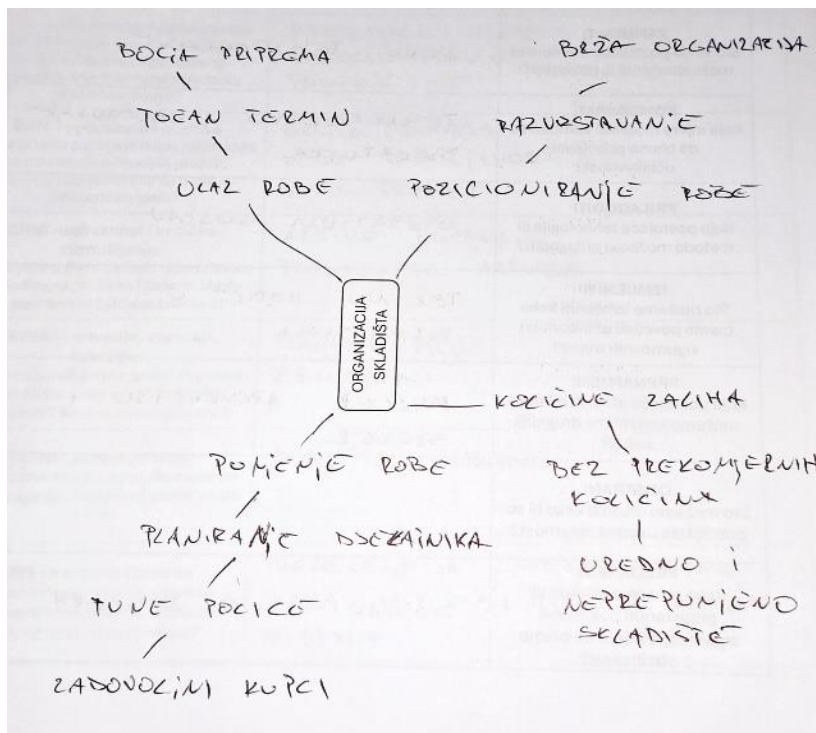 BOLJA PRIPREMA
TOČAN TERMIN
ULAZ ROBE
BRZA ORGANIZACIJA
RAZVRSTAVANJE
POZICIONIRANJE ROBE
ORGANIZACIJA
SKLADIŠTA
KOLIČINE ZALIHA
BEZ PREKOMJERNIH
KOLIČINA
UREDNO I
NEPREPUNJENO
SKLADIŠTE
PUNJENJE ROBE
PLANIRANJE DJELATNIKA
PUNE POLICE
ZADOVOLJNI KUPCI